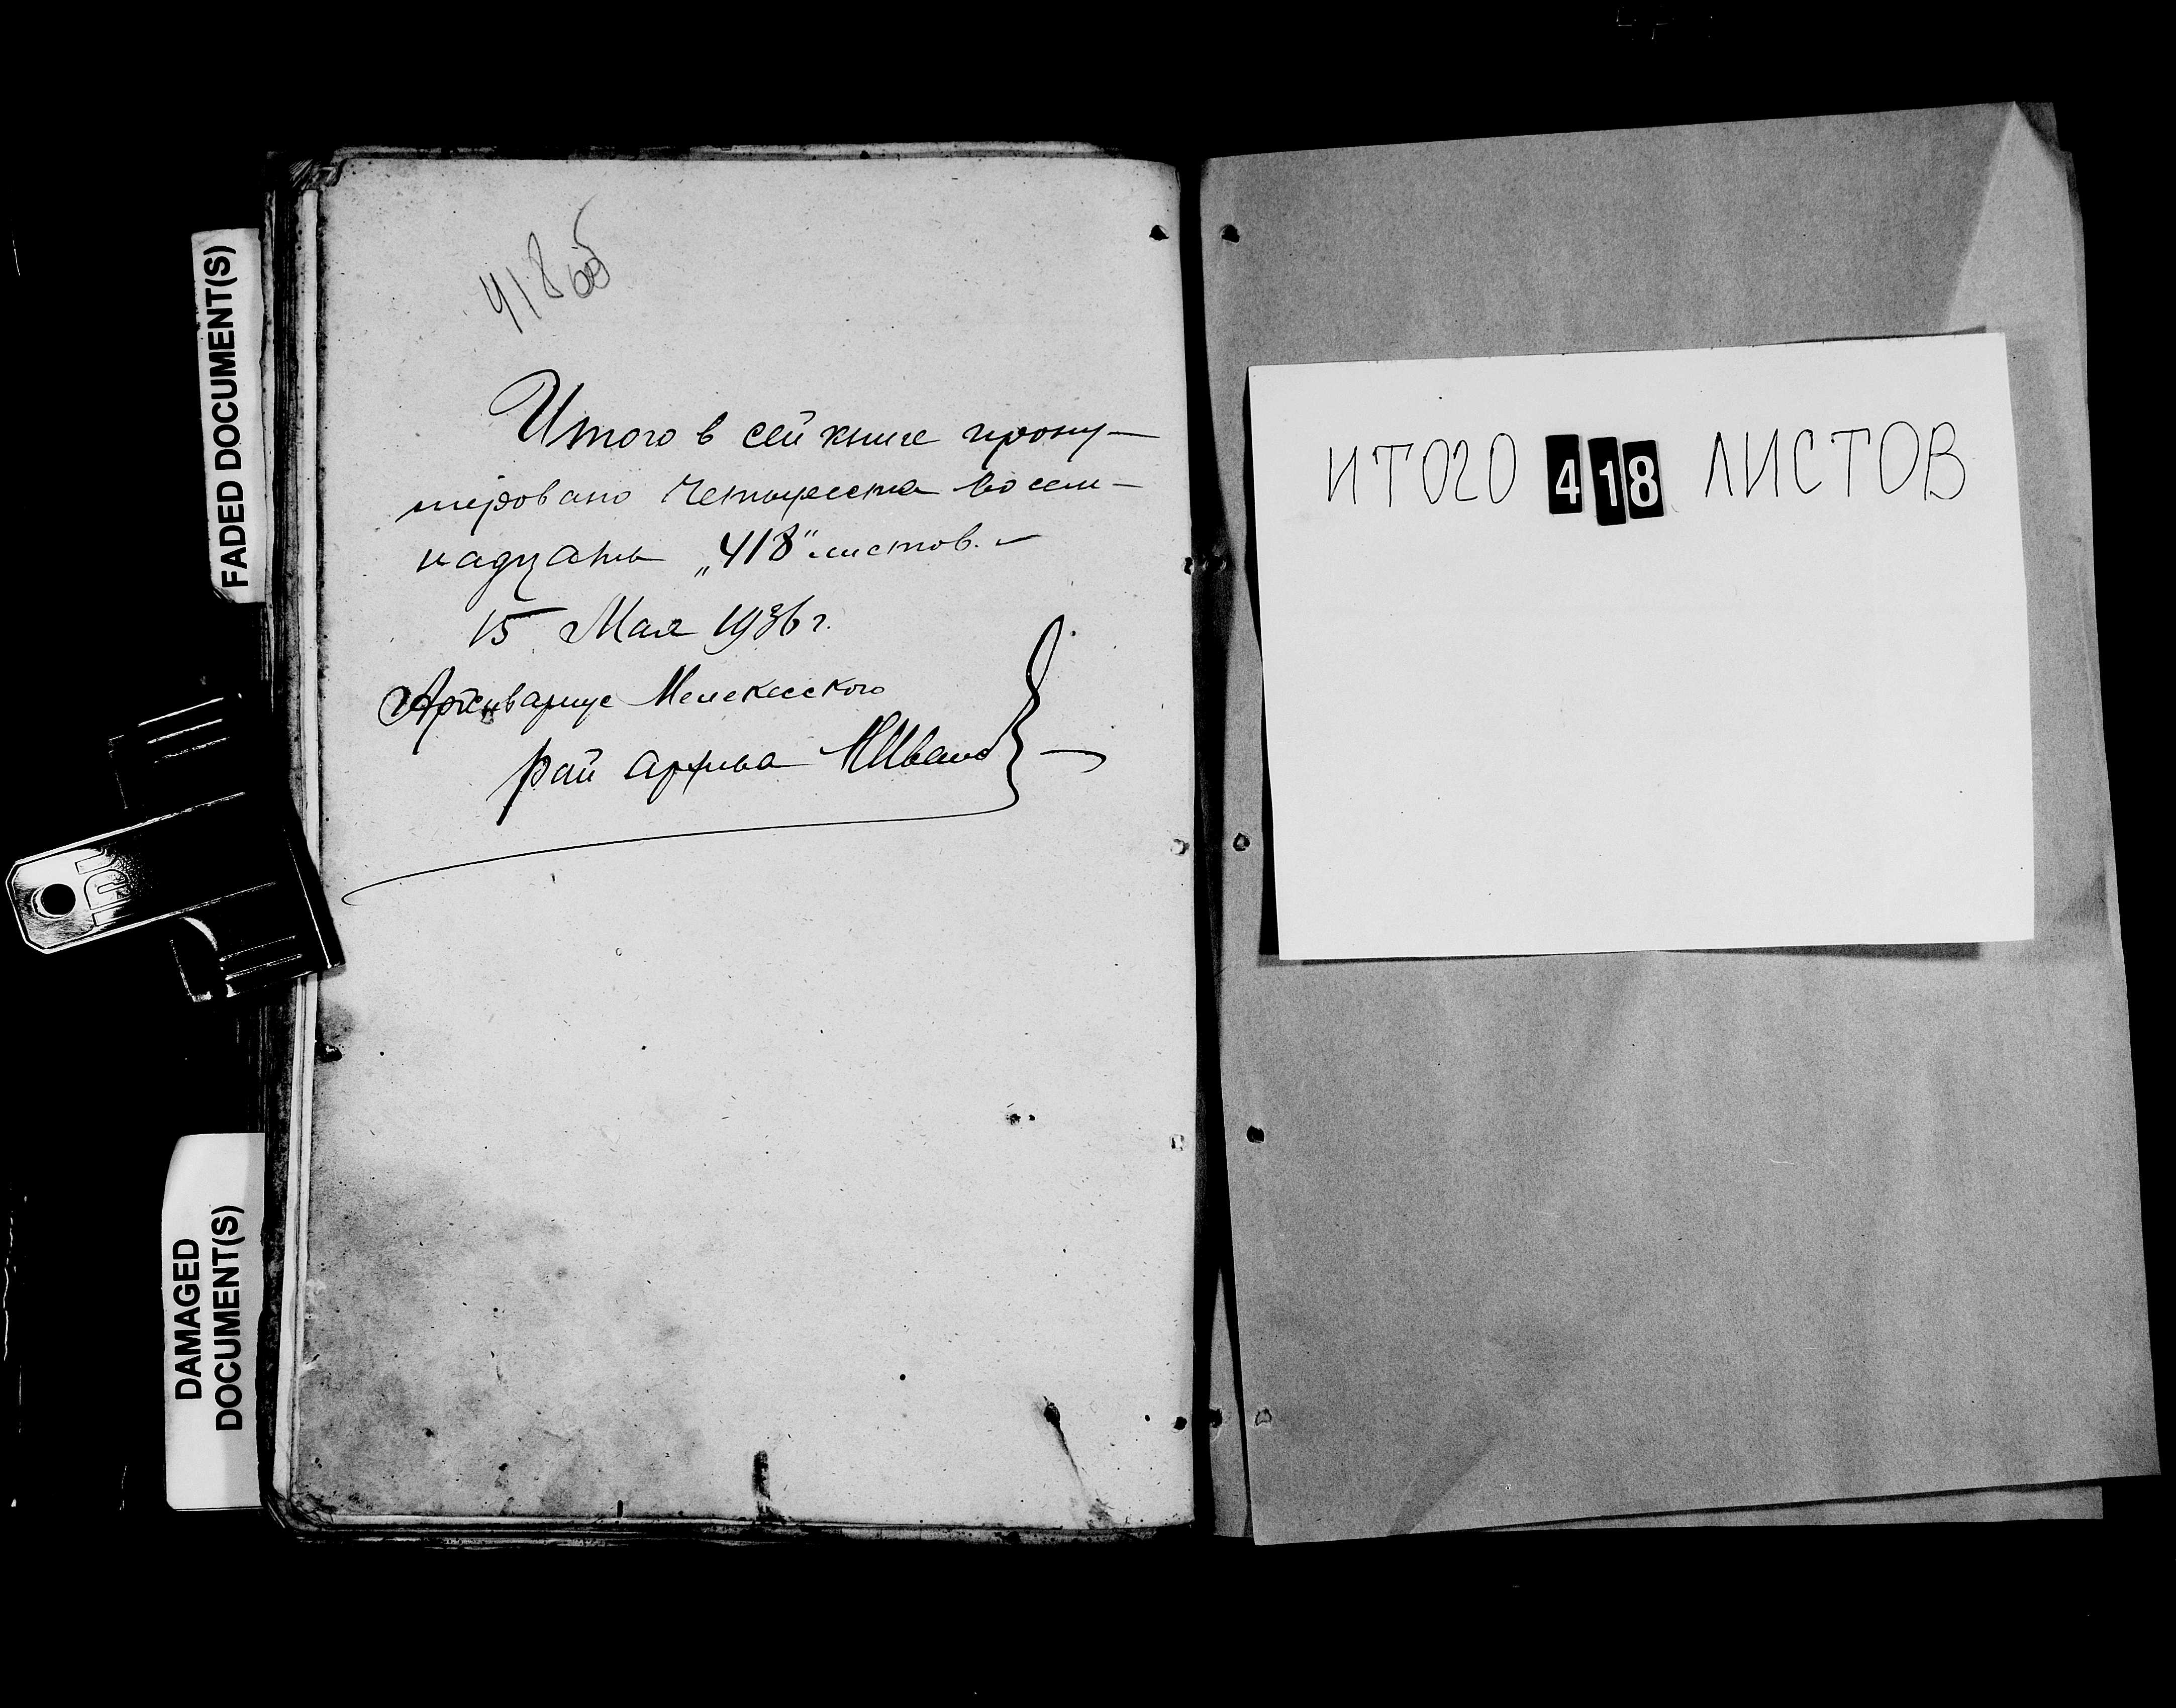 418 об
Итого в сей книге прону-
мировано Четыреста восем-
надцать „418“ листов.
15 Мая 1936 г.
Архивариус Мелекесского
рай архива НИванов
ИТОГО 418 ЛИСТОВ
FADED DOCUMENT(S)
DAMAGED
DOCUMENT(S)